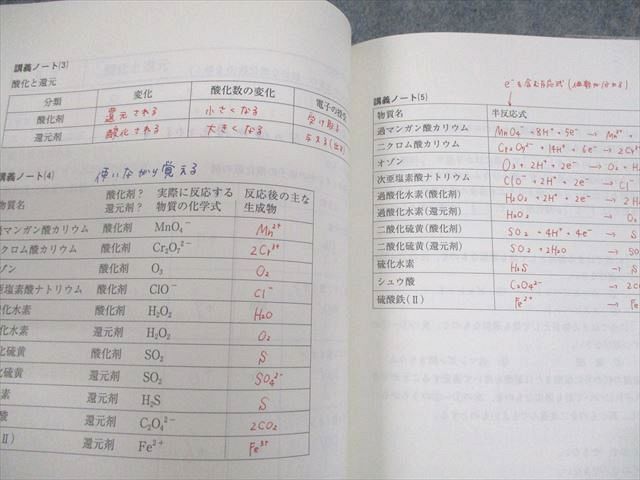 講義ノート(3)
酸化と還元
分類 変化 酸化数の変化 電子の授受
酸化剤 還元される 小さくなる 受け取る
還元剤 酸化される 大きくなる 与える(出す
講義ノート(4) 使いながら覚える
物質名 酸化剤?還元剤? 実際に反応する物質の化学式 反応後の主な生成物
過マンガン酸カリウム 酸化剤 MnO₄⁻ Mn²⁺
クロム酸カリウム 酸化剤 Cr₂O₇²⁻ 2Cr³⁺
ゾン 酸化剤 O₃ O₂
亜塩素酸ナトリウム 酸化剤 ClO⁻ Cl⁻
酸化水素 酸化剤 H₂O₂ H₂O
化水素 還元剤 H₂O₂ O₂
化硫黄 酸化剤 SO₂ S
化硫黄 還元剤 SO₂ SO₄²⁻
素 還元剤 H₂S S
酸 還元剤 C₂O₄²⁻ 2CO₂
II) 還元剤 Fe²⁺ Fe³⁺
e⁻を含む反応式(係数が分かる)
講義ノート(5)
物質名 半反応式
過マンガン酸カリウム MnO₄⁻ + 8H⁺ + 5e⁻ → Mn²⁺ +
ニクロム酸カリウム Cr₂O₇²⁻ + 14H⁺ + 6e⁻ → 2Cr³⁺
オゾン O₃ + 2H⁺ + 2e⁻ → O₂ + H₂
次亜塩素酸ナトリウム ClO⁻ + 2H⁺ + 2e⁻ → Cl⁻
過酸化水素(酸化剤) H₂O₂ + 2H⁺ + 2e⁻ → 2H
過酸化水素(還元剤) H₂O₂ → O₂
二酸化硫黄(酸化剤) SO₂ + 4H⁺ + 4e⁻ → S
二酸化硫黄(還元剤) SO₂ + 2H₂O → SO
硫化水素 H₂S → S
シュウ酸 C₂O₄²⁻ → 2CO
硫酸鉄(II) Fe²⁺ → Fe